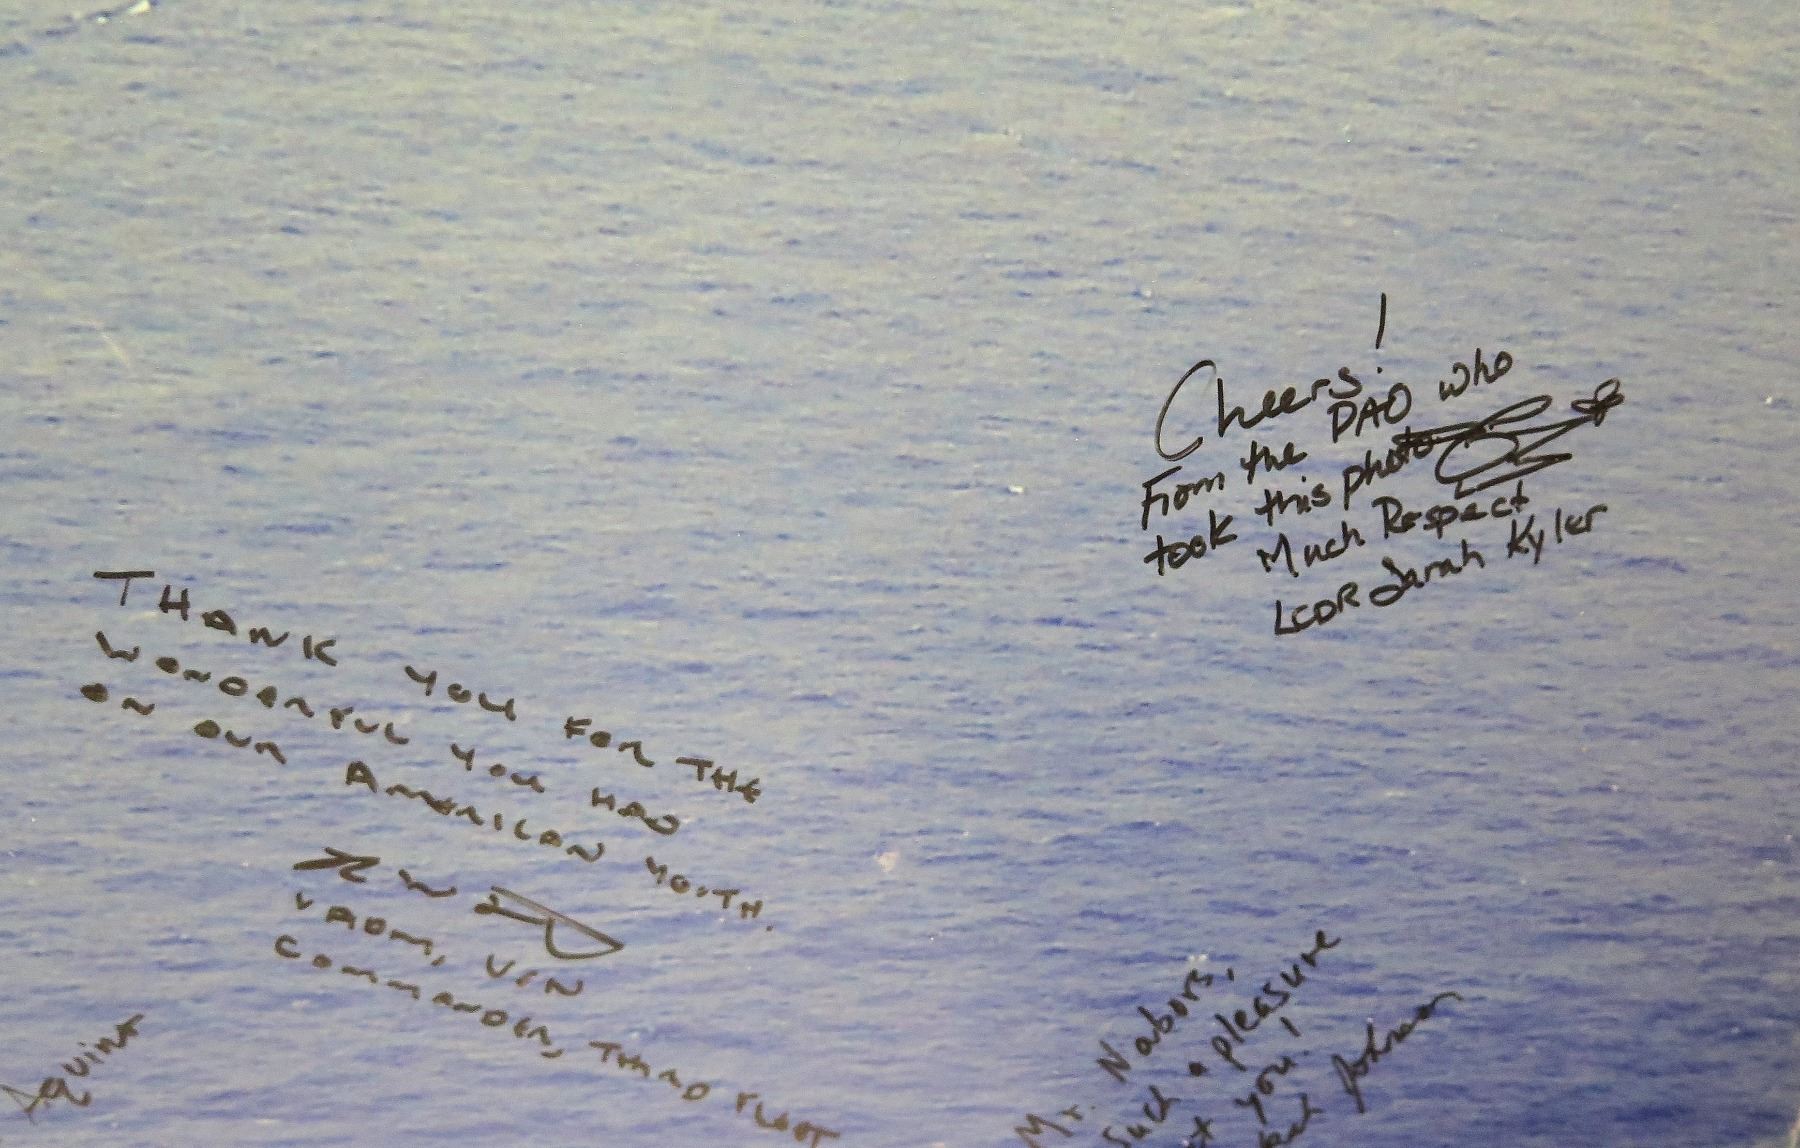 Cheers!
From the PAO who
took this photo
Much Respect
LCDR Sarah Kyler
THANK YOU FOR THE
WONDERFUL YOU HAD
ON OUR AMERICAN YOUTH.
VADM, USN
COMMANDER, THIRD FLEET
Mr. Nabors,
Such a pleasure
you!
Johnson